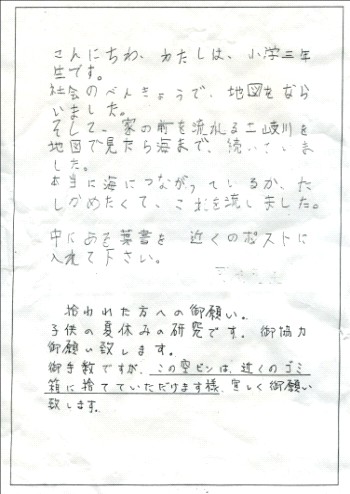 こんにちわ、わたしは、小学三年
生です。
社会のべんきょうで、地図をなら
いました。
そして、家の前を流れる二岐川を
地図で見たら海まで、続いていま
した。
本当に海につながっているか、た
しかめたくて、これを流しました。
中にある葉書を 近くのポストに
入れて下さい。
拾われた方への御願い。
子供の夏休みの研究です。御協力
御願い致します。
御手数ですが、この空ビンは、近くのゴミ
箱に捨てていただけます様、宜しく御願い
致します。